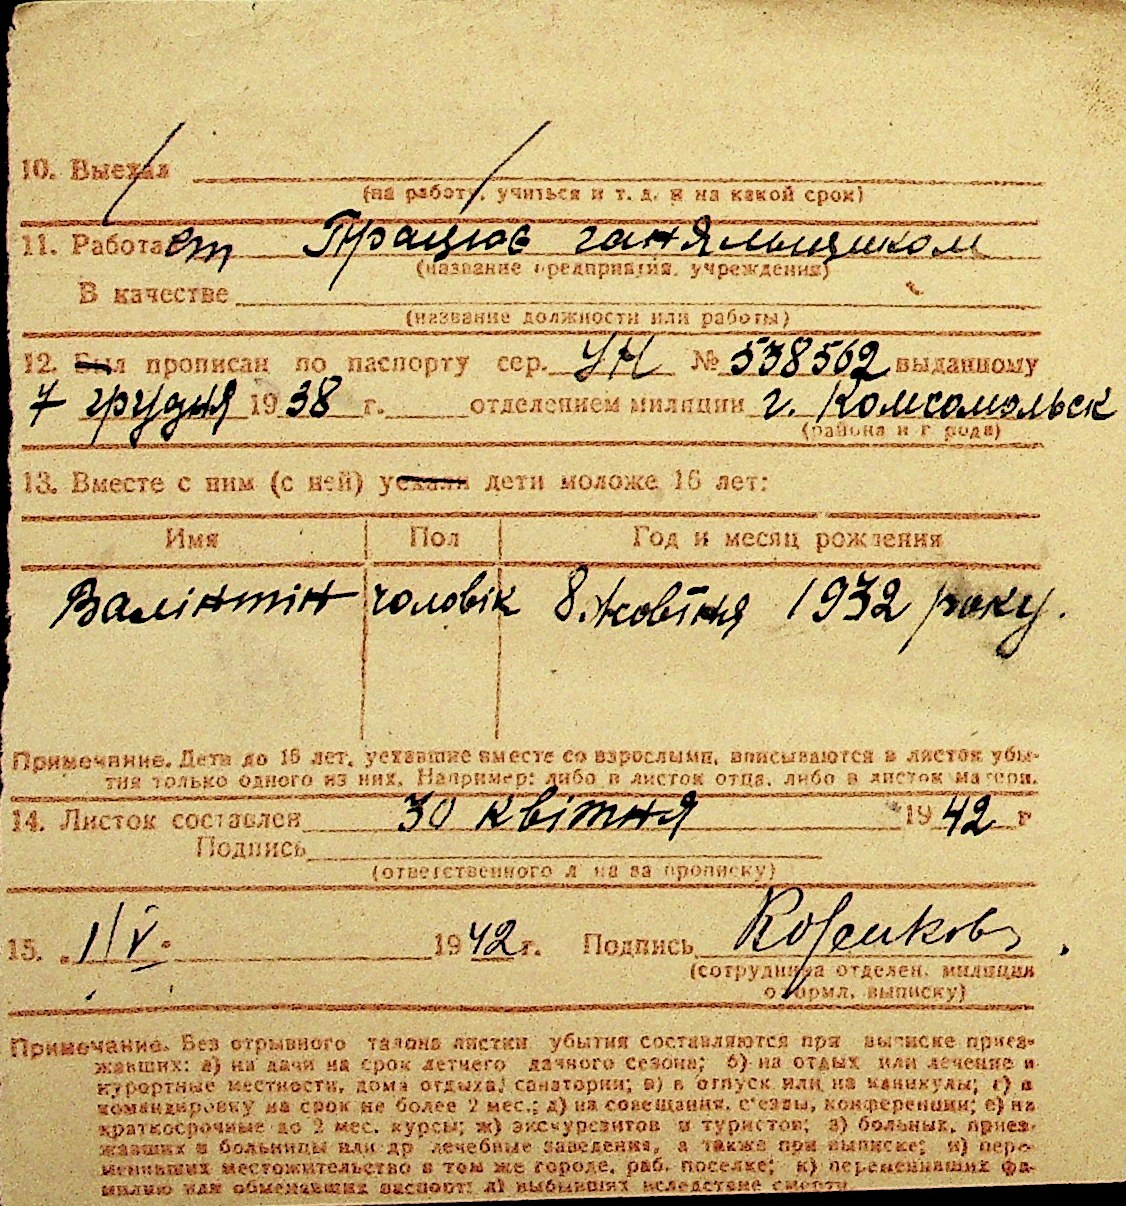 10. Выехал
(на работу, учиться и т. д. и на какой срок)
11. Работает Працює ганяльщиком
(название предприятия, учреждения)
В качестве
(название должности или работы)
12. Был прописан по паспорту сер. УН № 538562 выданному
7 грудня 1938 г. отделением милиции г. Комсомольск
(района и города)
13. Вместе с ним (с ней) уехали дети моложе 16 лет:
Имя Пол Год и месяц рождения
Валінтін чоловік 8. жовтня 1932 року.
Примечание. Дети до 16 лет, уехавшие вместе со взрослыми, вписываются в листок убы-
тия только одного из них. Например: либо в листок отца, либо в листок матери.
14. Листок составлен 30 квітня 1942 г
Подпись
(ответственного лица за прописку)
15. 1/V. 1942 г. Подпись
(сотрудника отделен. милиции
оформл. выписку)
Примечание. Без отрывного талона листки убытия составляются при выписке приез-
жавших: а) на дачи на срок летнего дачного сезона; б) на отдых или лечение в
курортные местности, дома отдыха, санатории; в) в отпуск или на каникулы; г) в
командировку на срок не более 2 мес.; д) на совещания, с'езды, конференции; е) на
краткосрочные до 2 мес. курсы; ж) экскурсантов и туристов; з) больных, приез-
жавших в больницы или др лечебные заведения, а также при выписке; и) пере-
менивших местожительство в том же городе, раб. поселке; к) переменивших фа-
милию или обменявших паспорт; л) выбывших вследствие смерти